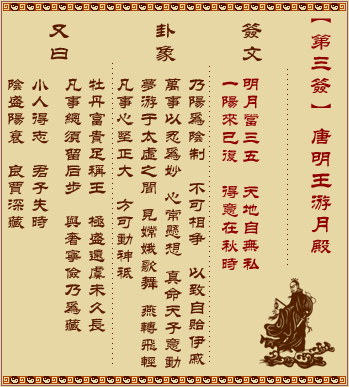 【第三簽】 唐明王游月殿
簽文
明月當三五 天地自無私
一陽來已復 得意在秋時
卦象
乃陽爲陰制 不可相爭 以致自貽伊戚
萬事以忍爲妙 心常懸想 真命天子意動
夢游于太虛之間 見嫦娥歌舞 燕轉飛輕
凡事心堅正大 方可動神祗
又曰
牡丹富貴足稱王 極盛還虞未久長
凡事總須留后步 與奢寧儉乃爲臧
小人得志 君子失時
陰盛陽衰 良賈深藏